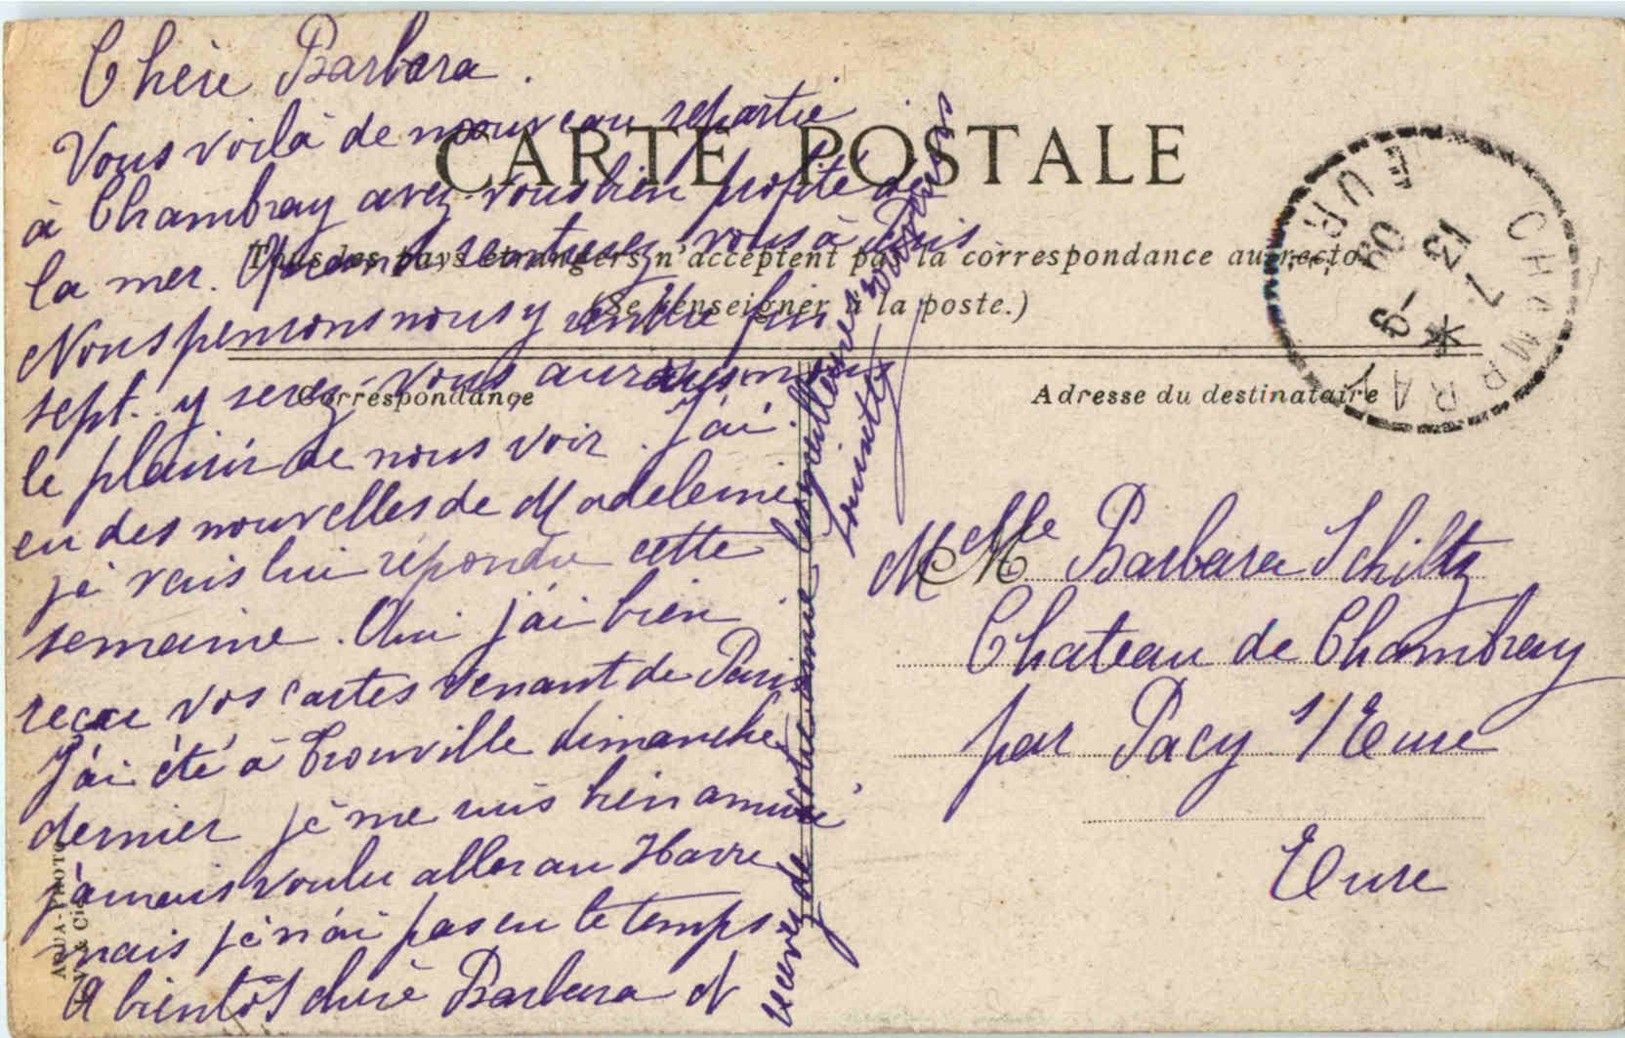 Chère Barbara.
Vous voilà de nouveau repartie
à Chambray avez-vous bien profité de
la mer. Quand rentrerez vous à Paris
Nous pensons nous y rentrer fin
sept. y serez-vous aurons nous
le plaisir de nous voir. J'ai
eu des nouvelles de Madeleine
je vais lui répondre cette
semaine. Oui j'ai bien
reçu vos cartes venant de Paris
J'ai été à Trouville dimanche
dernier je me suis bien amusé
j'amais voulu aller au Havre
mais je n'ai pas eu le temps
A bientôt chère Barbara et
recevez de votre amie les meilleures
amitiés
CARTE POSTALE
Tous les pays étrangers n'acceptent pas la correspondance au recto
(Se renseigner à la poste.)
Correspondance
Adresse du destinataire
M
Melle Barbara Schiltz
Chateau de Chambray
par Pacy s/Eure
Eure
CHAMBRAY
EURE
13
7
09
AQUA-PHOTO
L.V. & Cie